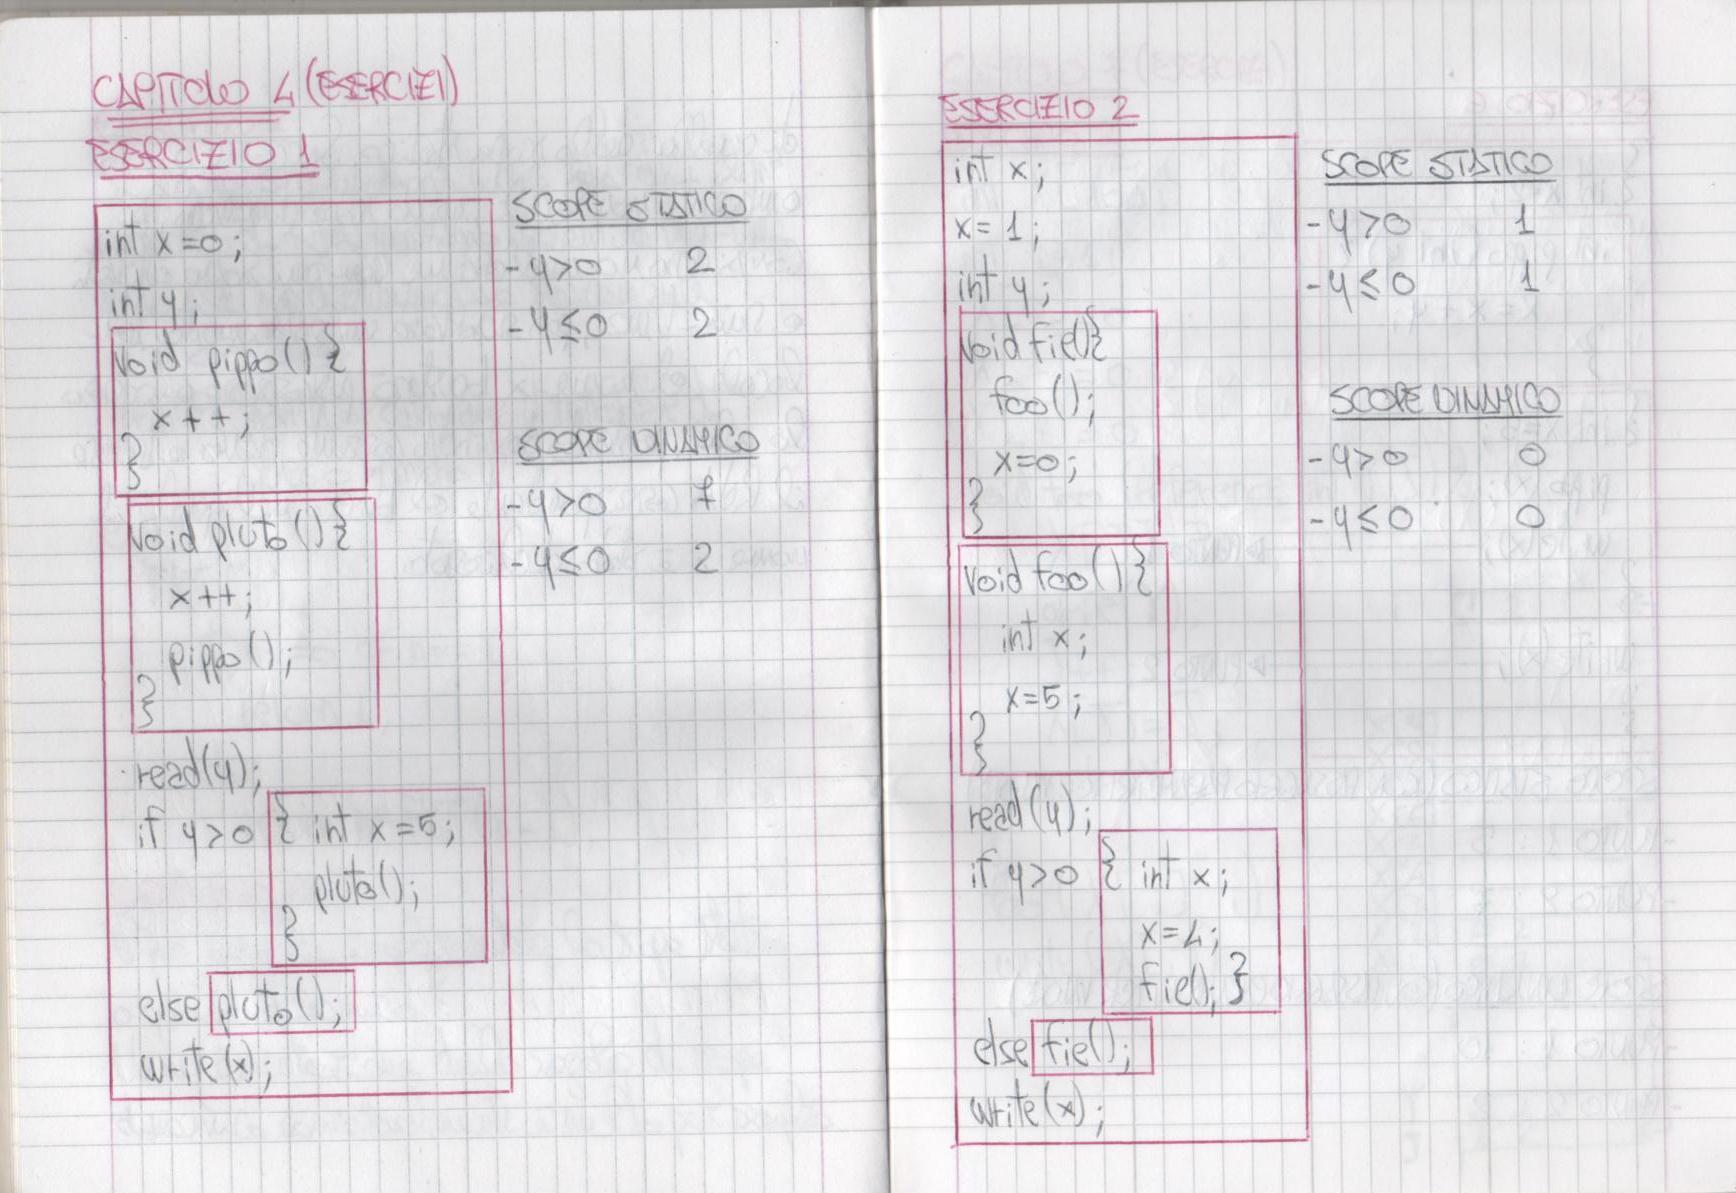 CAPITOLO 4 (ESERCIZI)
ESERCIZIO 1
int x=0;
int y;
void pippo(){
x++;
}
void pluto(){
x++;
pippo();
}
read(y);
if y>0 { int x=5;
pluto();
}
else pluto();
write(x);
SCOPE STATICO
-y>0 2
-y≤0 2
SCOPE DINAMICO
-y>0 7
-y≤0 2
ESERCIZIO 2
int x;
x=1;
int y;
void fie(){
foo();
x=0;
}
void foo(){
int x;
x=5;
}
read(y);
if y>0 { int x;
x=4;
fie(); }
else fie();
write(x);
SCOPE STATICO
-y>0 1
-y≤0 1
SCOPE DINAMICO
-y>0 0
-y≤0 0